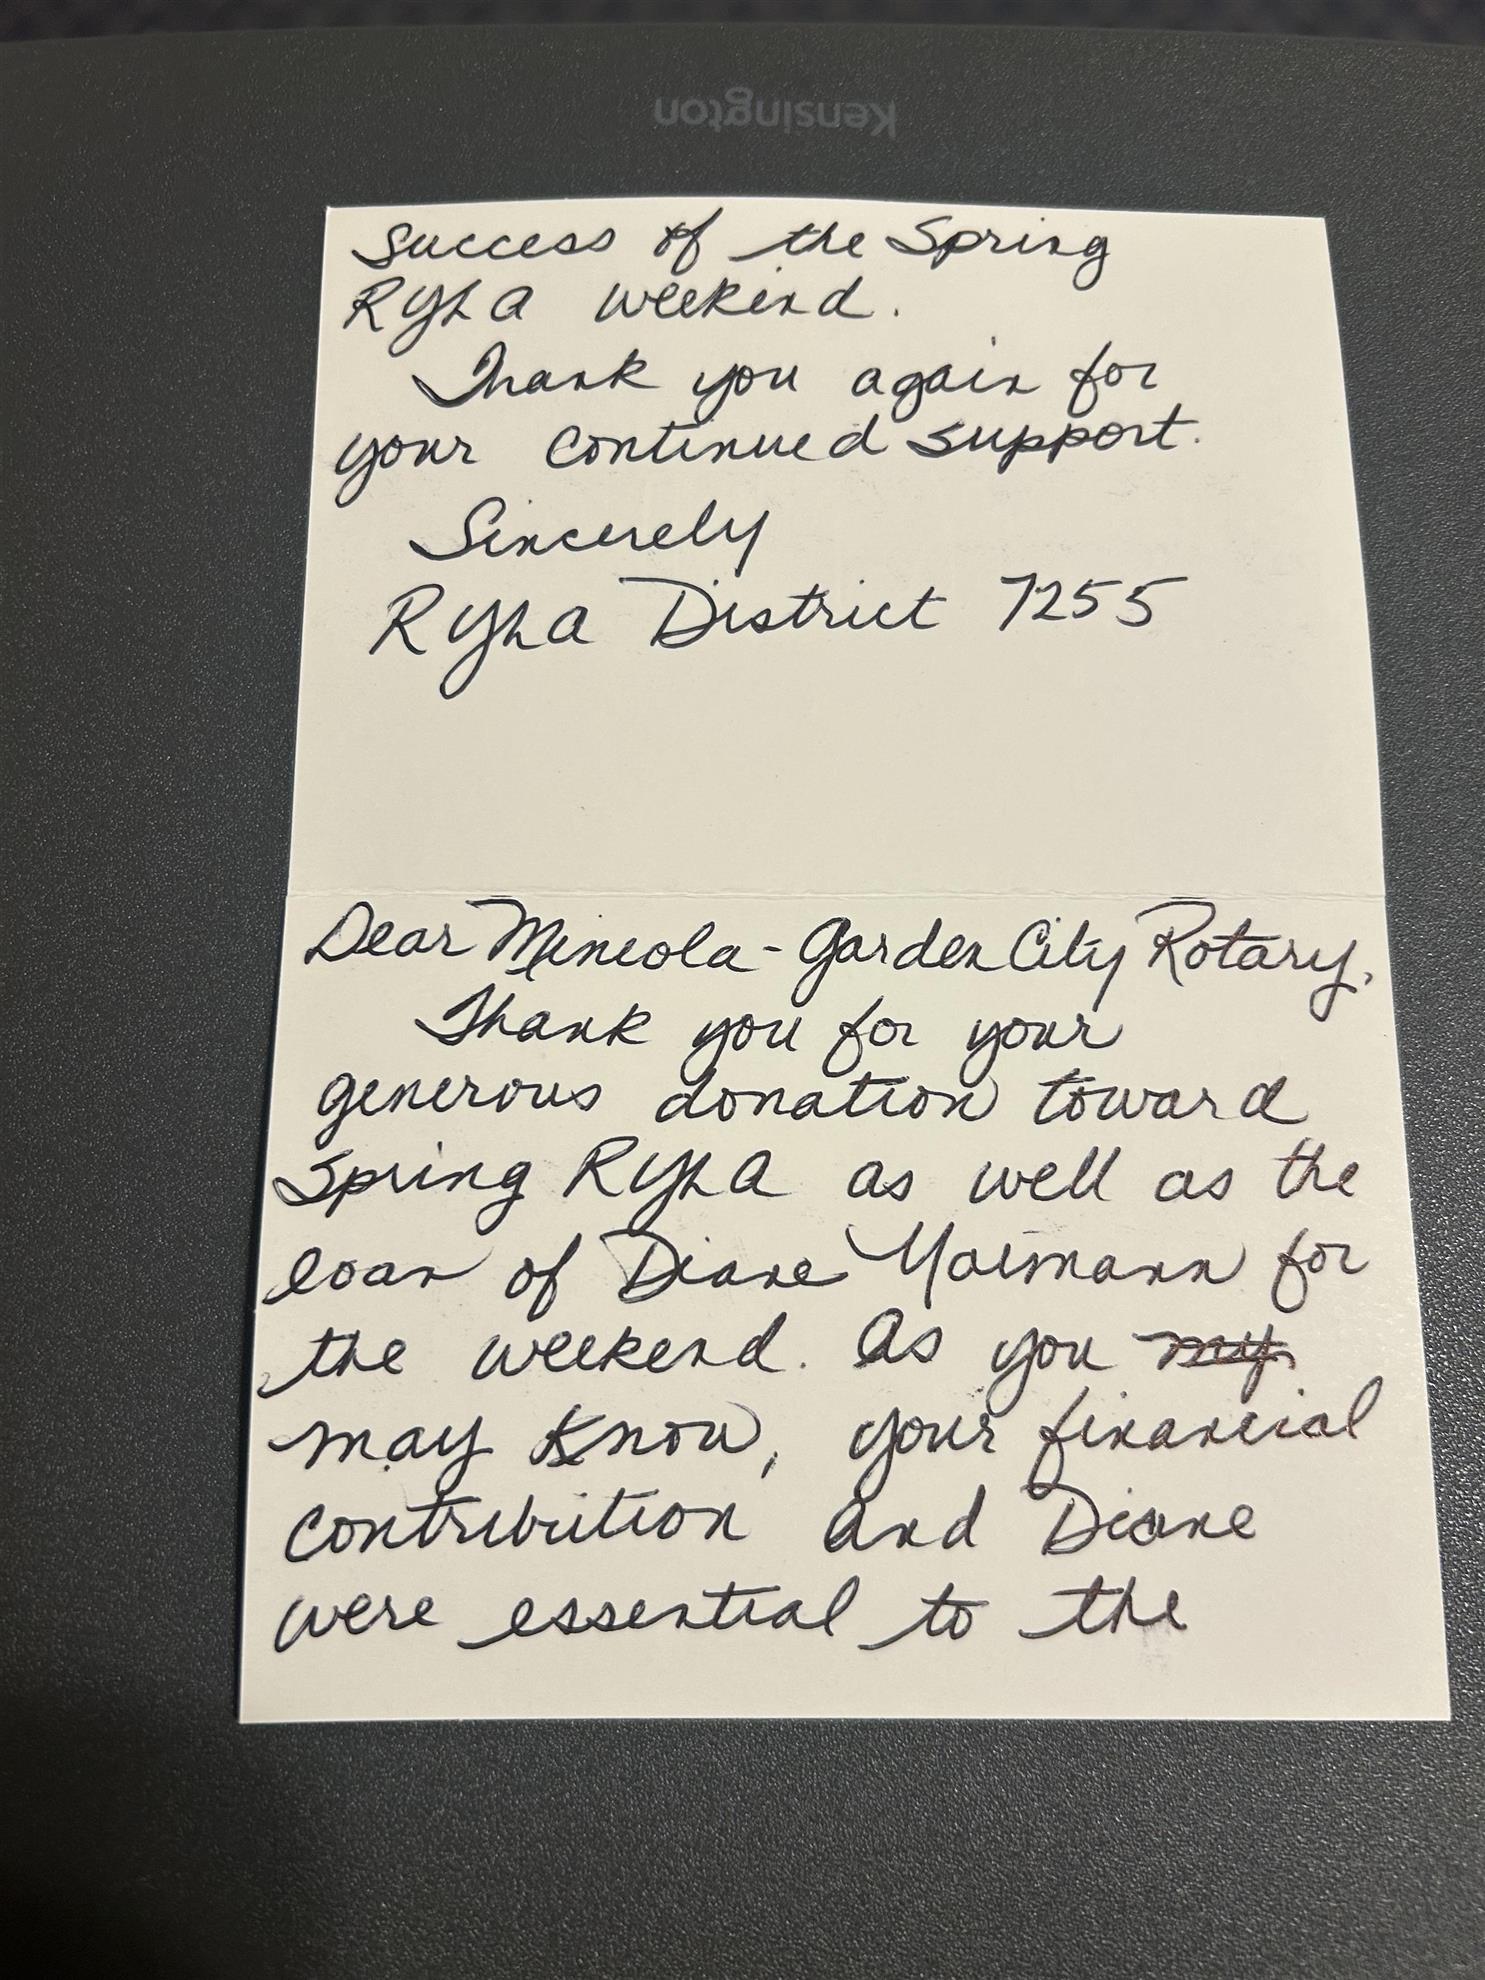 Kensington
success of the Spring
RYLA weekend.
Thank you again for
your continued support.
Sincerely
RYLA District 7255
Dear Mineola-Garden City Rotary,
Thank you for your
generous donation toward
Spring RYLA as well as the
loan of Diane for
the weekend. As you my
may know, your financial
contribution and Diane
were essential to the